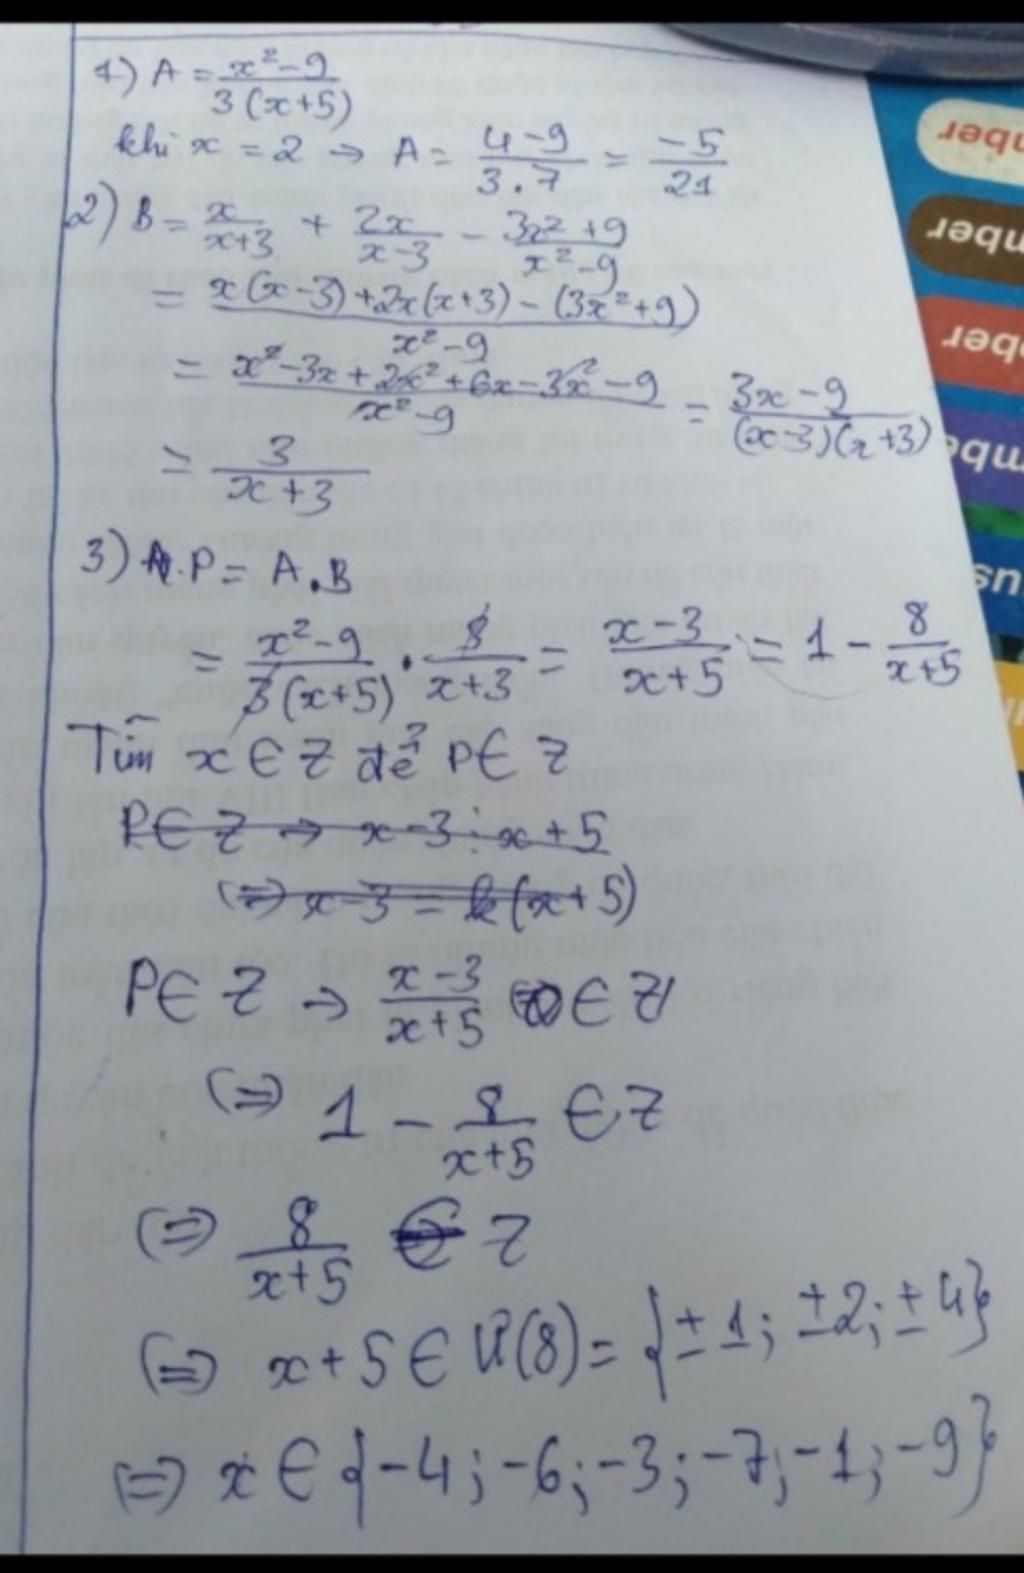 1) A = \frac{x^2-9}{3(x+5)}
khi x = 2 → A = \frac{4-9}{3.7} = \frac{-5}{21}
2) B = \frac{x}{x+3} + \frac{2x}{x-3} - \frac{3x^2+9}{x^2-9}
= \frac{x(x-3)+2x(x+3)-(3x^2+9)}{x^2-9}
= \frac{x^2-3x+2x^2+6x-3x^2-9}{x^2-9} = \frac{3x-9}{(x-3)(x+3)}
= \frac{3}{x+3}
3) P = A.B
= \frac{x^2-9}{3(x+5)} . \frac{3}{x+3} = \frac{x-3}{x+5} = 1 - \frac{8}{x+5}
Tìm x ∈ Z để P ∈ Z
P ∈ Z → x-3 ⋮ x+5
⇔ x-3 = k(x+5)
P ∈ Z → \frac{x-3}{x+5} ∈ Z
⇔ 1 - \frac{8}{x+5} ∈ Z
⇔ \frac{8}{x+5} ∈ Z
⇔ x+5 ∈ Ư(8) = {±1; ±2; ±4}
⇔ x ∈ {-4; -6; -3; -7; -1; -9}